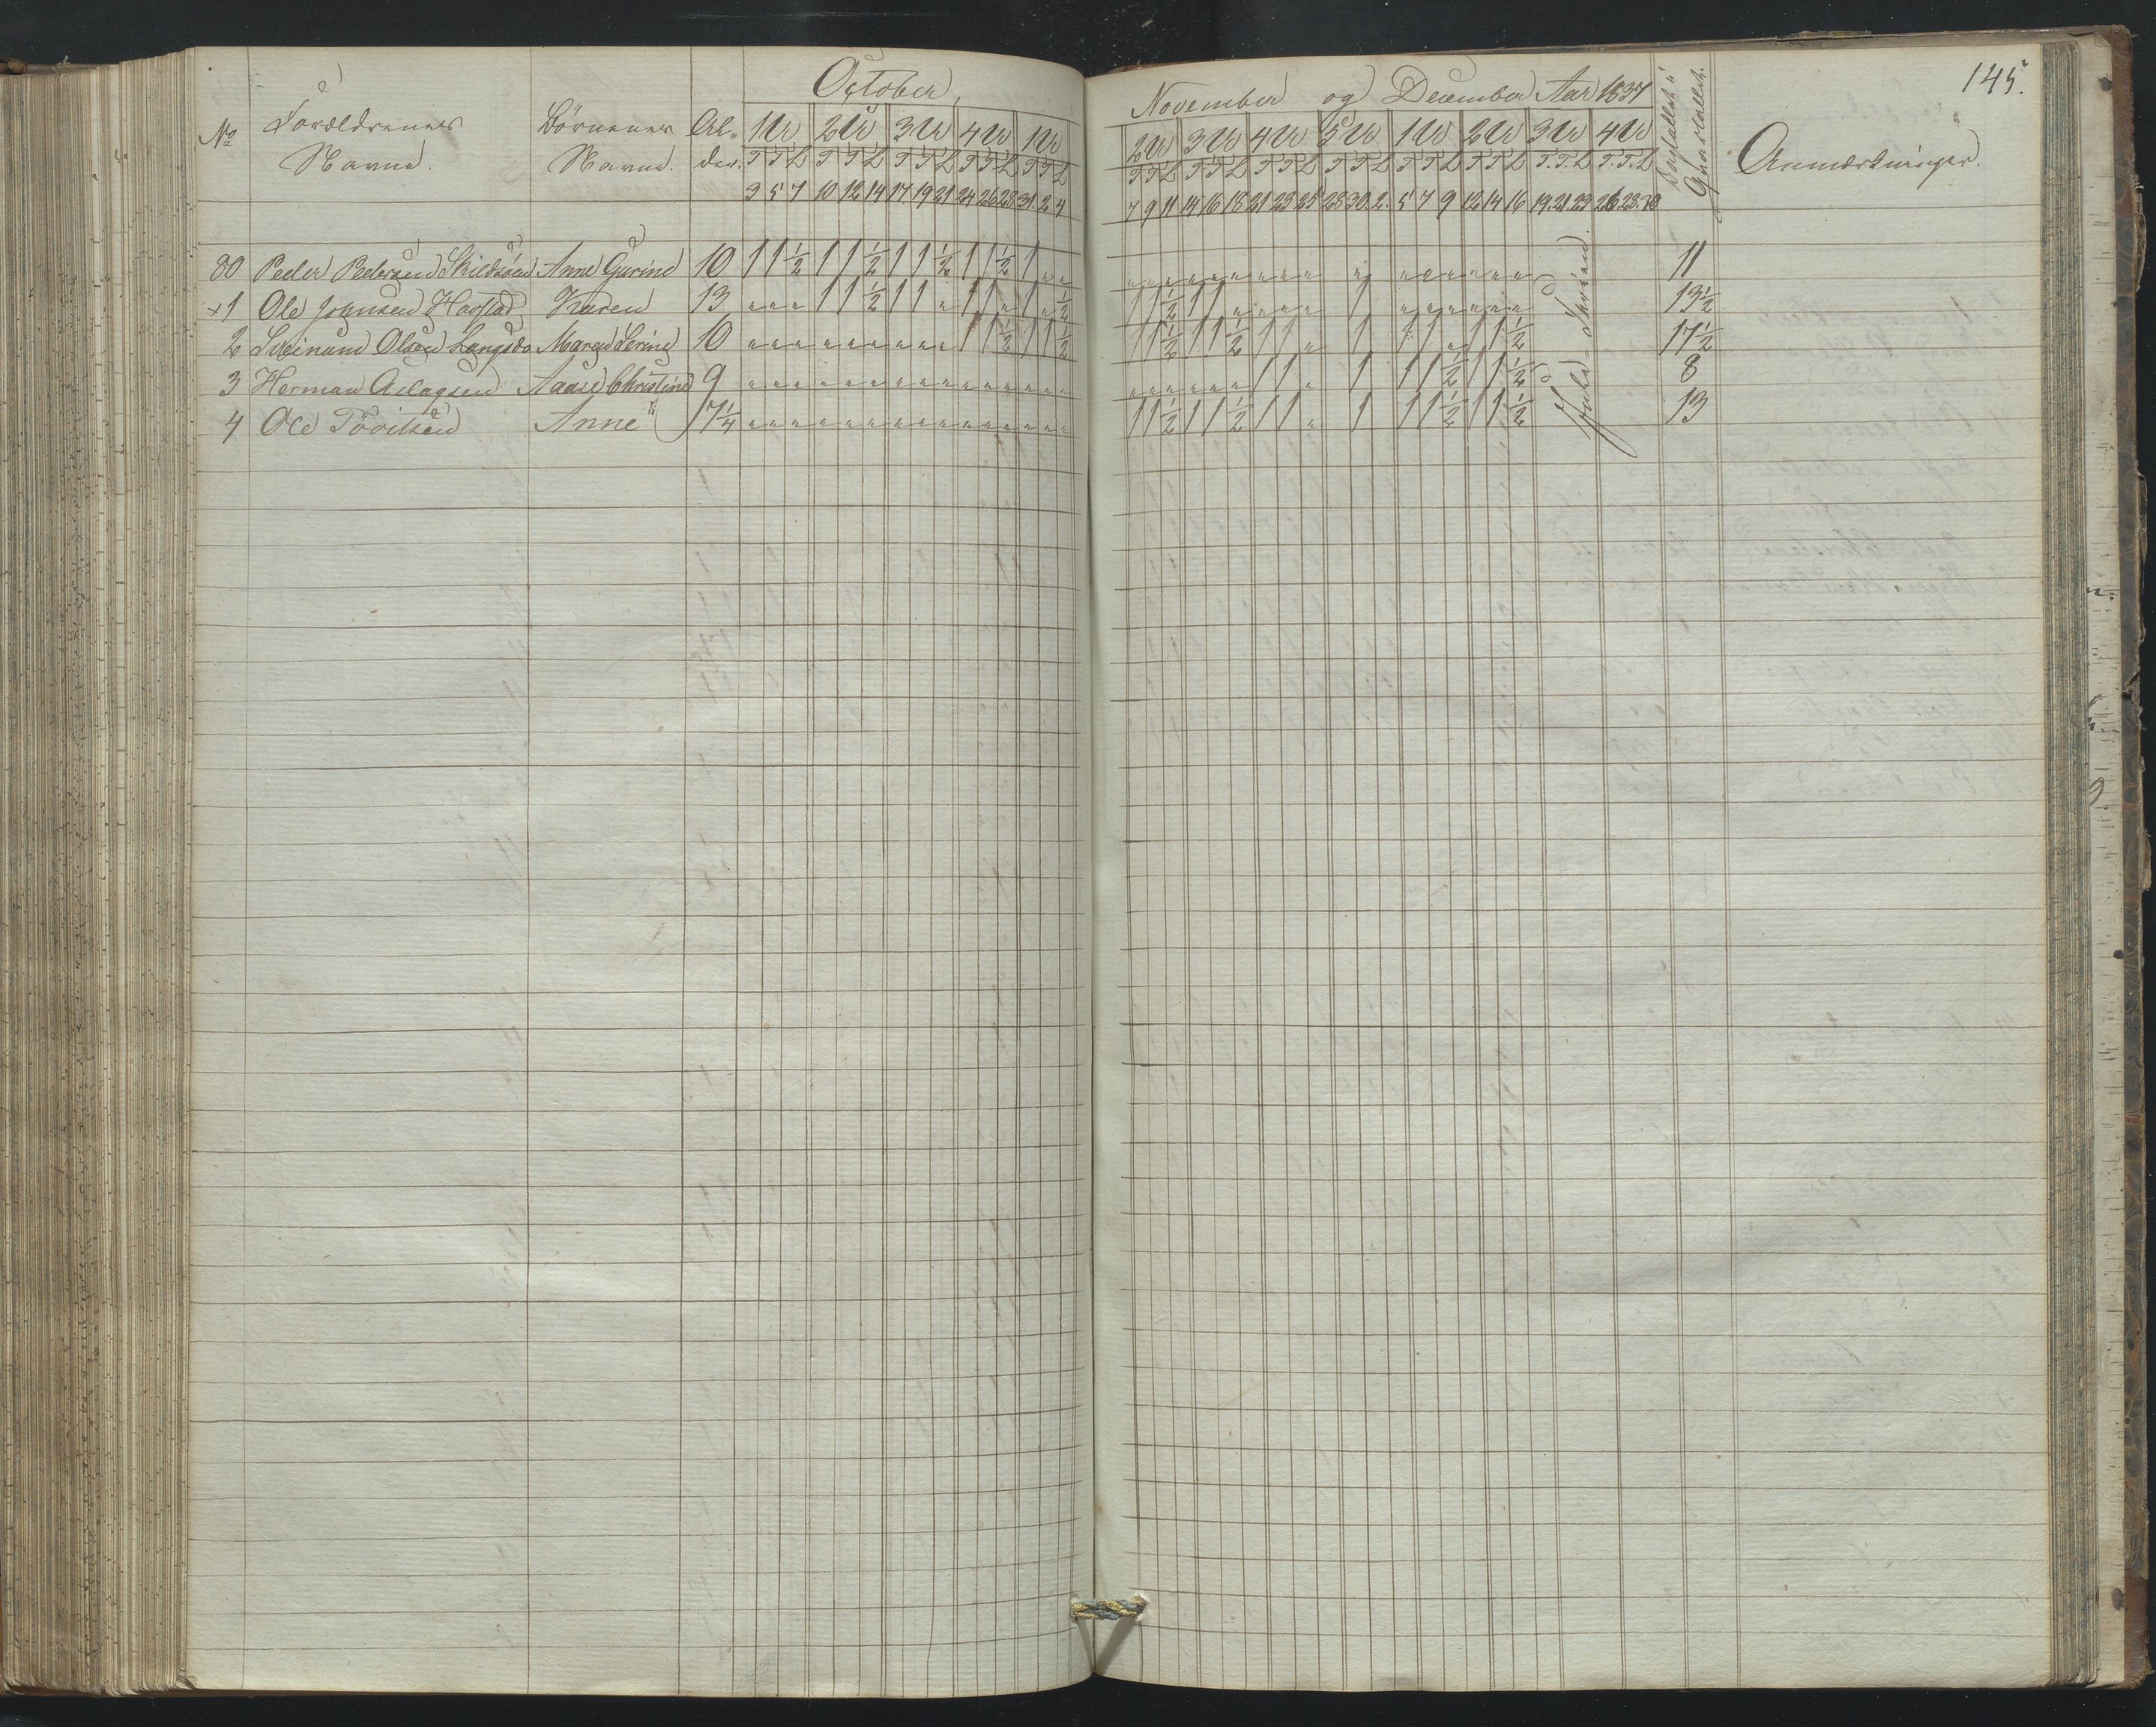 October,
November og December Aar 1837
145.
No Forældrenes Navne. Børnenes Navne. Al- der.
1 U 2 U 3 U 4 U 1 U
2 U 3 U 4 U 5 U 1 U 2 U 3 U 4 U
T T L T T L T T L T T L T T L
T T L T T L T T L T T L T T L T T L T. T. L T. T. L
3 5 7 10 12 14 17 19 21 24 26 28 31. 2 4
7 9 11 14 16 18 21 23 25 28 30. 2. 5 7 9 12 14 16 19. 21. 23 26 28. 30
Dagtallet i Qvartallet.
Anmærkninger.
80 Peder Pedersen Skildsøen Anne Gurine 10 1 1 ½ 1 1 ½ 1 1 ½ 1 1 ½ 1 " " 11
+1 Ole Johnsen Havstad Karen 13 " " " 1 1 ½ 1 1 " 1 1 " 1 " ½ 1 1 ½ 1 1 " 13½
2 Sveinum Olsen Langsdo Maren Serine 10 1 1 ½ 1 1 ½ 1 1 ½ 1 1 ½ 1 1 " 1 1 1 " 1 1 ½ 17½
3 Herman Aslagsen Aase Christine 9 1 1 " 1 1 1 ½ 1 1 ½ 8
4 Ole Tövitsen Anne 7¼ 1 1 ½ 1 1 ½ 1 1 " 1 1 1 ½ 1 1 ½ 13
Jule-Ferien.